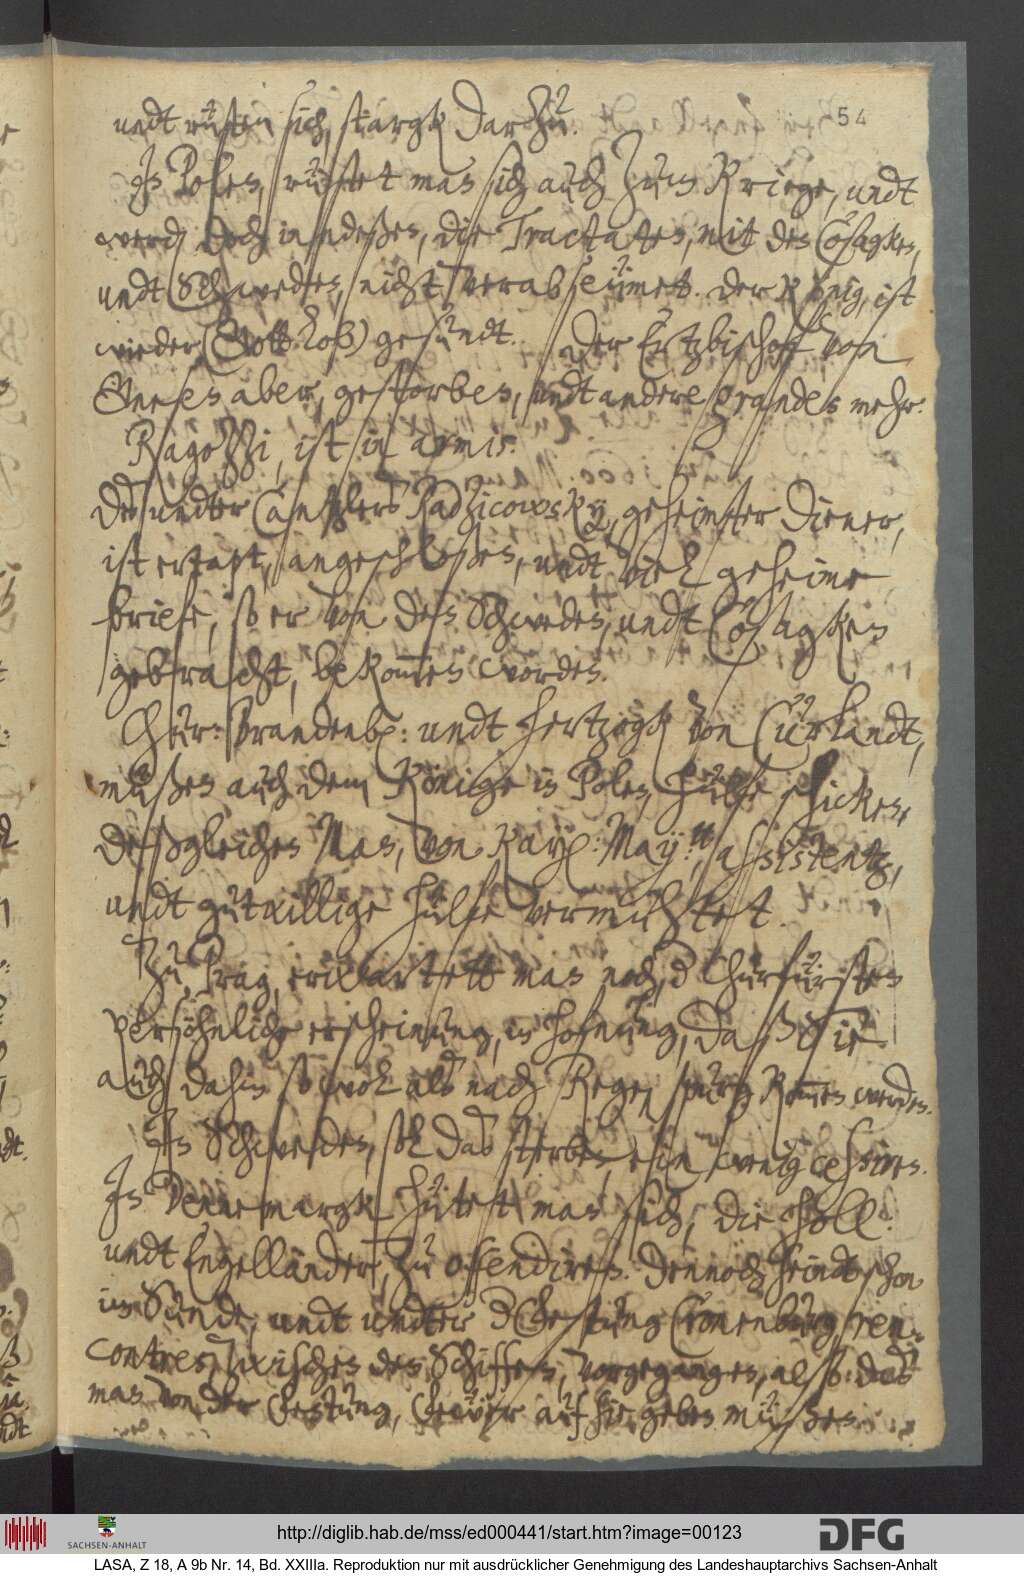 54
undt rüsten sich, stargk darzu.
In Polen, rüstet man sich auch zum Kriege, undt
werden doch indeßen, die Tractaten, mit den Cosagken,
undt Schweden, nicht verabseümet. Der König, ist
wieder (Gott lob) gesundt. Der Ertzbischoff von
Gnesen aber, gestorben, undt andere grandes mehr.
Ragozzi, ist in armis.
Des undter Cantzlers Radzicowsky, geheimster Diener,
ist ertapt, angeschloßen, undt viel geheime
briefe, so er von den Schweden, undt Cosagken
gebracht, bekommen worden.
Chur: Brandenb: undt Hertzogk von Curlandt,
müßen auch dem Könige in Polen, hülfe schicken,
deßgleichen Man, von Kay: May:tt assistentz,
undt gutwillige hülfe vermuhtet.
Zu Prag, erwartett man noch, der Churfürsten
persöhnliche erscheinung, in hofnung, daß Sie
auch dahin sowol als nach Regenspurg kommen werden.
In Schweden, sol das sterben, ein wenig cessiren.
In Dennemargk hütet man sich, die Holl:
undt Engelländer, zu offendiren. Dennoch seindt schon
im Sunde, undt undter der Festung Cronenburg, ren¬
contres, zwischen den Schiffen, vorgegangen, also: daß
man von der Festung, fewer auf sie geben müßen.
http://diglib.hab.de/mss/ed000441/start.htm?image=00123
SACHSEN-ANHALT
DFG
LASA, Z 18, A 9b Nr. 14, Bd. XXIIIa. Reproduktion nur mit ausdrücklicher Genehmigung des Landeshauptarchivs Sachsen-Anhalt